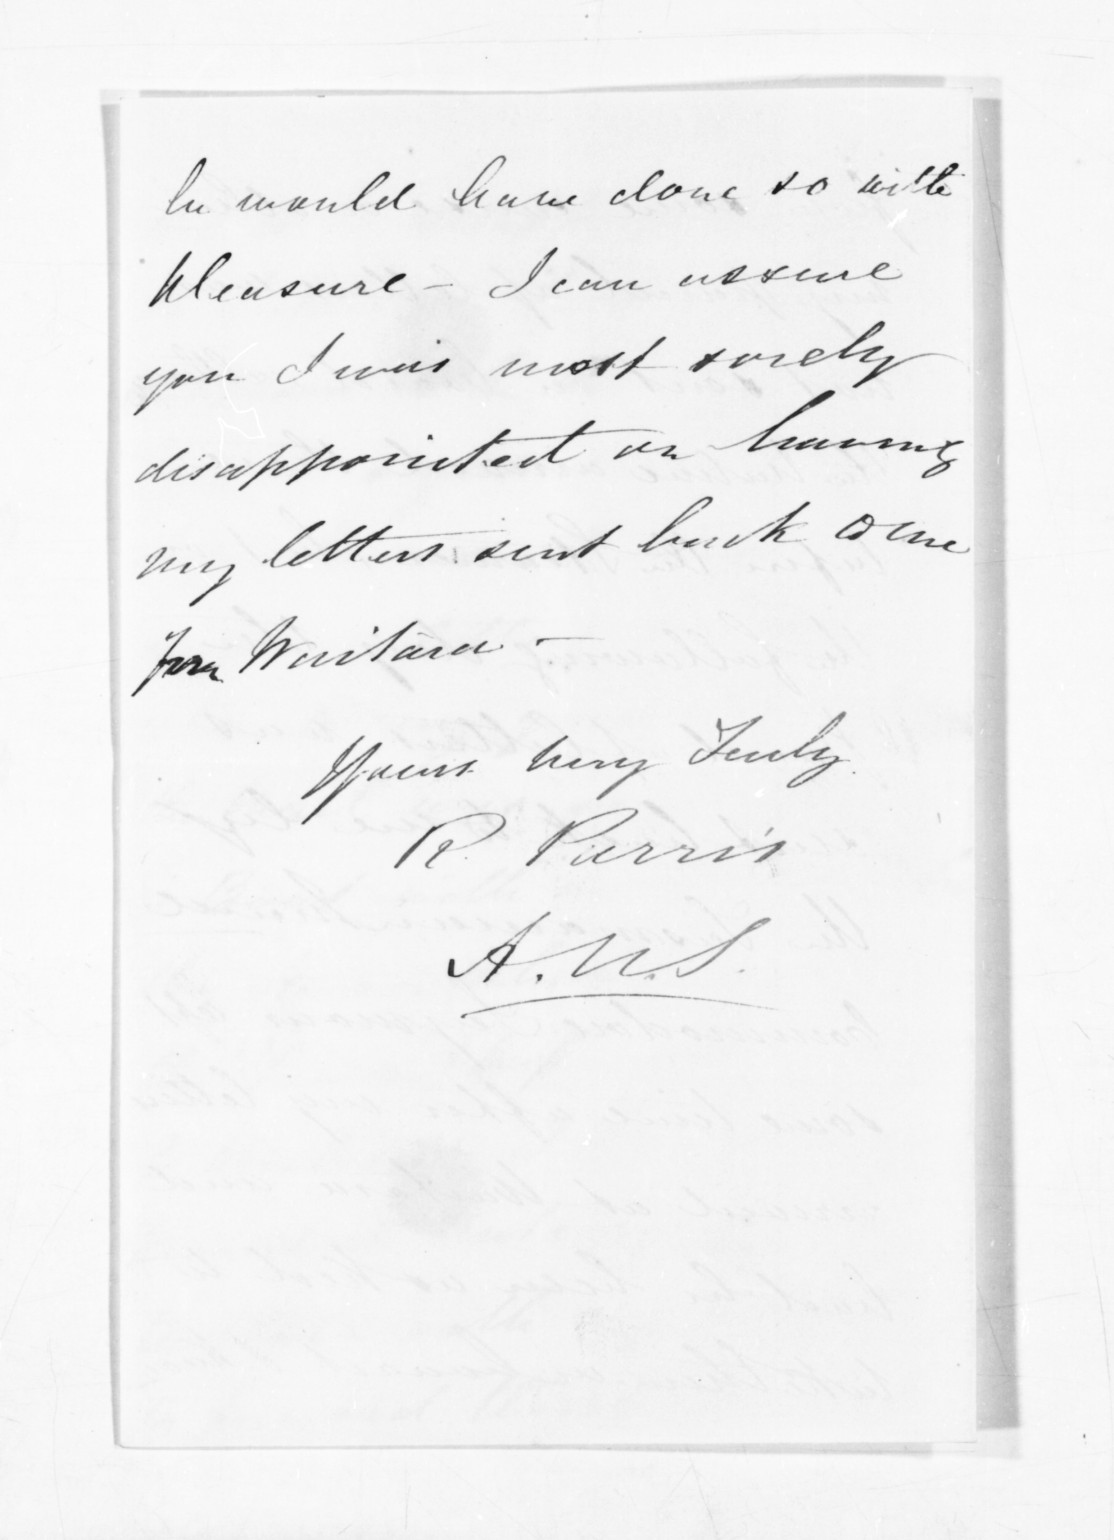 he would have done so with
pleasure - I can assure
you I was most sorely
disappointed on having
my letters sent back to me
from Waitara -
Yours very Truly
R. Parris
A.N.S.